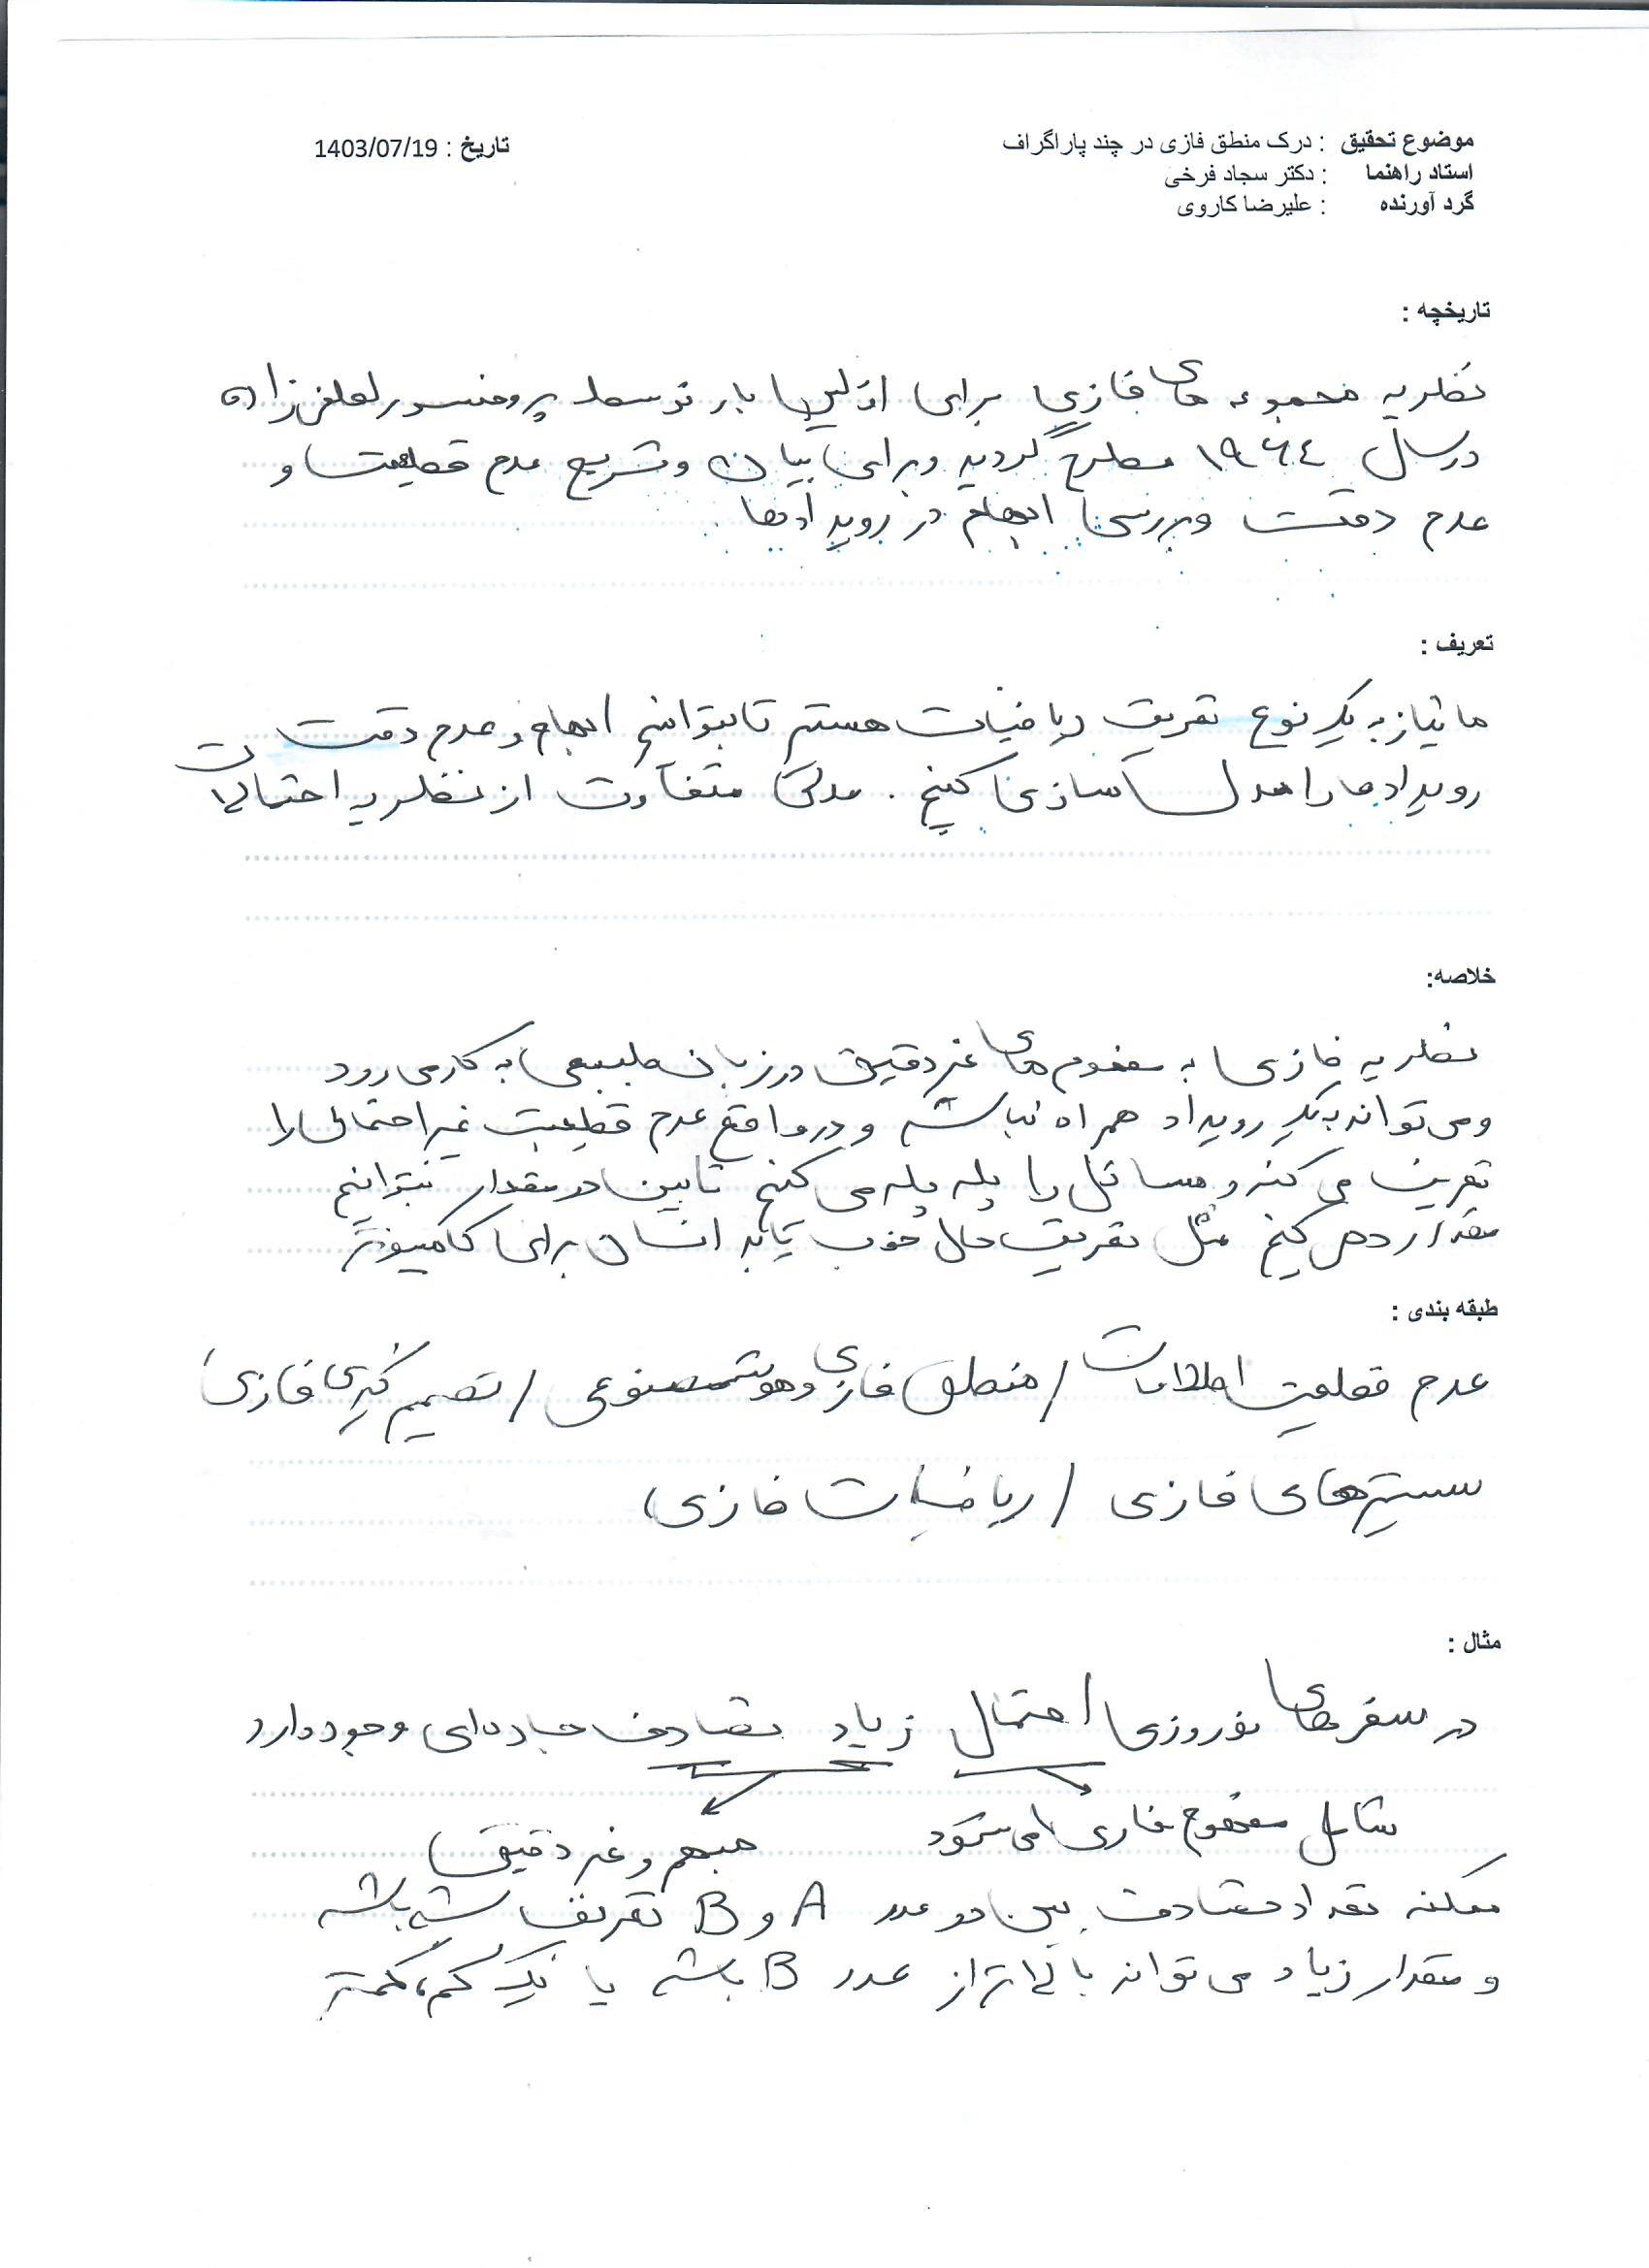 موضوع تحقیق : درک منطق فازی در چند پاراگراف
تاریخ : 1403/07/19
استاد راهنما : دکتر سجاد فرخی
گرد آورنده : علیرضا کاروی
تاریخچه :
نظریه مجموعه های فازی برای اولین بار توسط پروفسور لطفی زاده
در سال ۱۹۶۴ مطرح گردید و برای بیان و تشریح عدم قطعیت و
عدم دقت و بررسی ابهام در رویدادها .
تعریف :
ما نیاز به یک نوع تعریف ریاضیات هستیم تا بتوانیم ابهام و عدم دقت
رویدادها را مدل سازی کنیم . مدلی متفاوت از نظریه احتمالات
خلاصه:
نظریه فازی به مفهوم های غیر دقیق در زبان طبیعی به کار می رود
و می تواند به یک رویداد همراه نباشد و در واقع عدم قطعیت غیر احتمالی را
تعریف می کند و مسائل را پله پله می کنیم تا بین دو مقدار بتوانیم
مقدار دهی کنیم مثل تعریف حال خوب یا بد انسان برای کامپیوتر
طبقه بندی :
عدم قطعیت اطلاعات / منطق فازی و هوش مصنوعی / تصمیم گیری فازی
سیستم های فازی / ریاضیات فازی
مثال :
در سفر های نوروزی احتمال زیاد تصادف جاده ای وجود دارد
شامل مفهوم فازی می شود
مبهم و غیر دقیق
ممکنه تعداد تصادف بین دو عدد A و B تعریف شده باشه
و مقدار زیاد می تواند بالاتر از عدد B باشد یا یک کم، کمتر